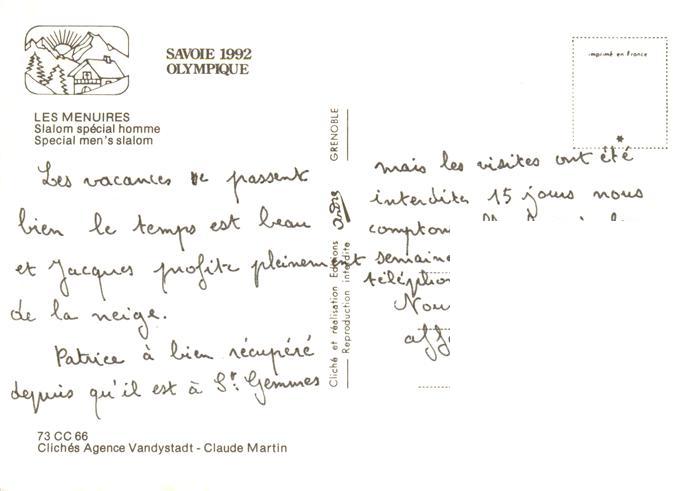 SAVOIE 1992
OLYMPIQUE
LES MENUIRES
Slalom spécial homme
Special men's slalom
Les vacances se passent
bien le temps est beau
et Jacques profite pleinement
de la neige.
Patrice à bien récupéré
depuis qu'il est à St. Gemmes
73 CC 66
Clichés Agence Vandystadt - Claude Martin
Cliché et réalisation Editions André GRENOBLE
Reproduction interdite
imprimé en France
mais les visites ont été
interdites 15 jours nous
semaine